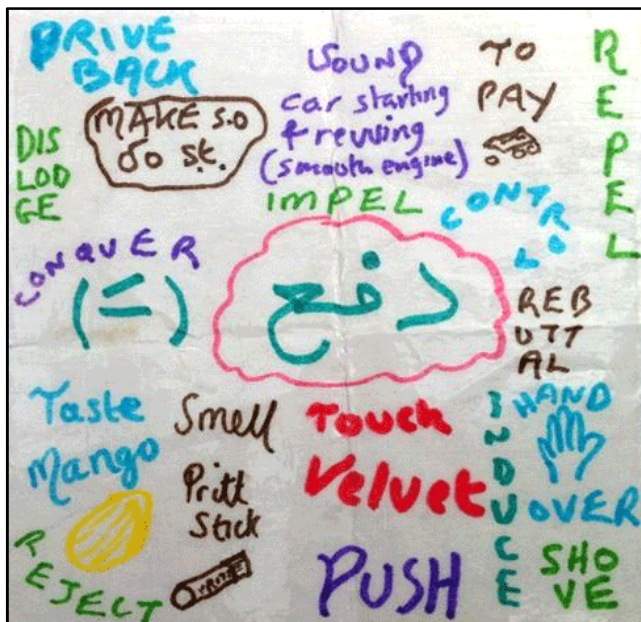 DRIVE
BACK
SOUND
car starting
& revving
(smooth engine)
TO
PAY
REPEL
MAKE s.o
do st.
DIS
LOD
GE
IMPEL
CONTROL
CONQUER
(=)
دفع
REB
UTT
AL
Taste
Mango
Smell
Pritt
Stick
TOUCH
Velvet
INDUCE
HAND
OVER
REJECT
PUSH
SHO
VE